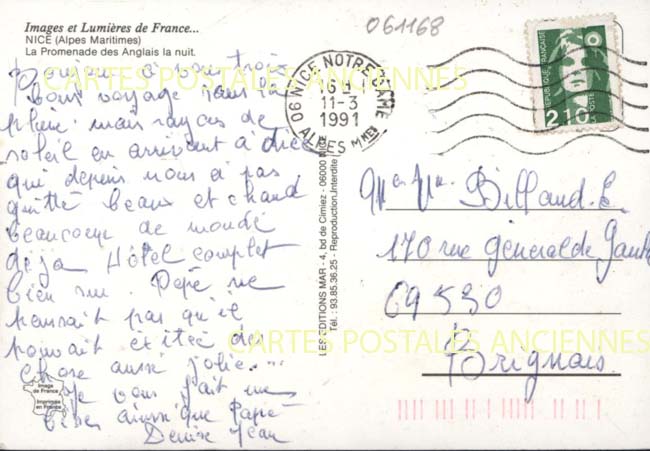 Images et Lumières de France...
NICE (Alpes Maritimes)
La Promenade des Anglais la nuit.
061168
Bonjour à vous trois
Bons voyage sans
pluie mais rayons de
soleil en arrivant à
qui depuis nous a pas
quitté beaux et chaud
beaucoup de monde
déja Hôtel complet
bien sur. Pépé ne
pensait pas qu'il
pouvait existé des
chose aussi jolie....
Je vous fait mes
bises ainsi que Papé
Denise Jean
CARTES POSTALES ANCIENNES
CARTES POSTALES ANCIENNES
Image
de France
Imprimée
en France
LES EDITIONS MAR - 4, bd de Cimiez - 06000 NICE
Tél : 93.85.36.25 - Reproduction Interdite
06 NICE NOTRE DAME
16 H
11-3
1991
ALPES MMES
REPUBLIQUE FRANÇAISE
LA POSTE
2,10
Billand. E.
170 rue général de
69530
Brignais